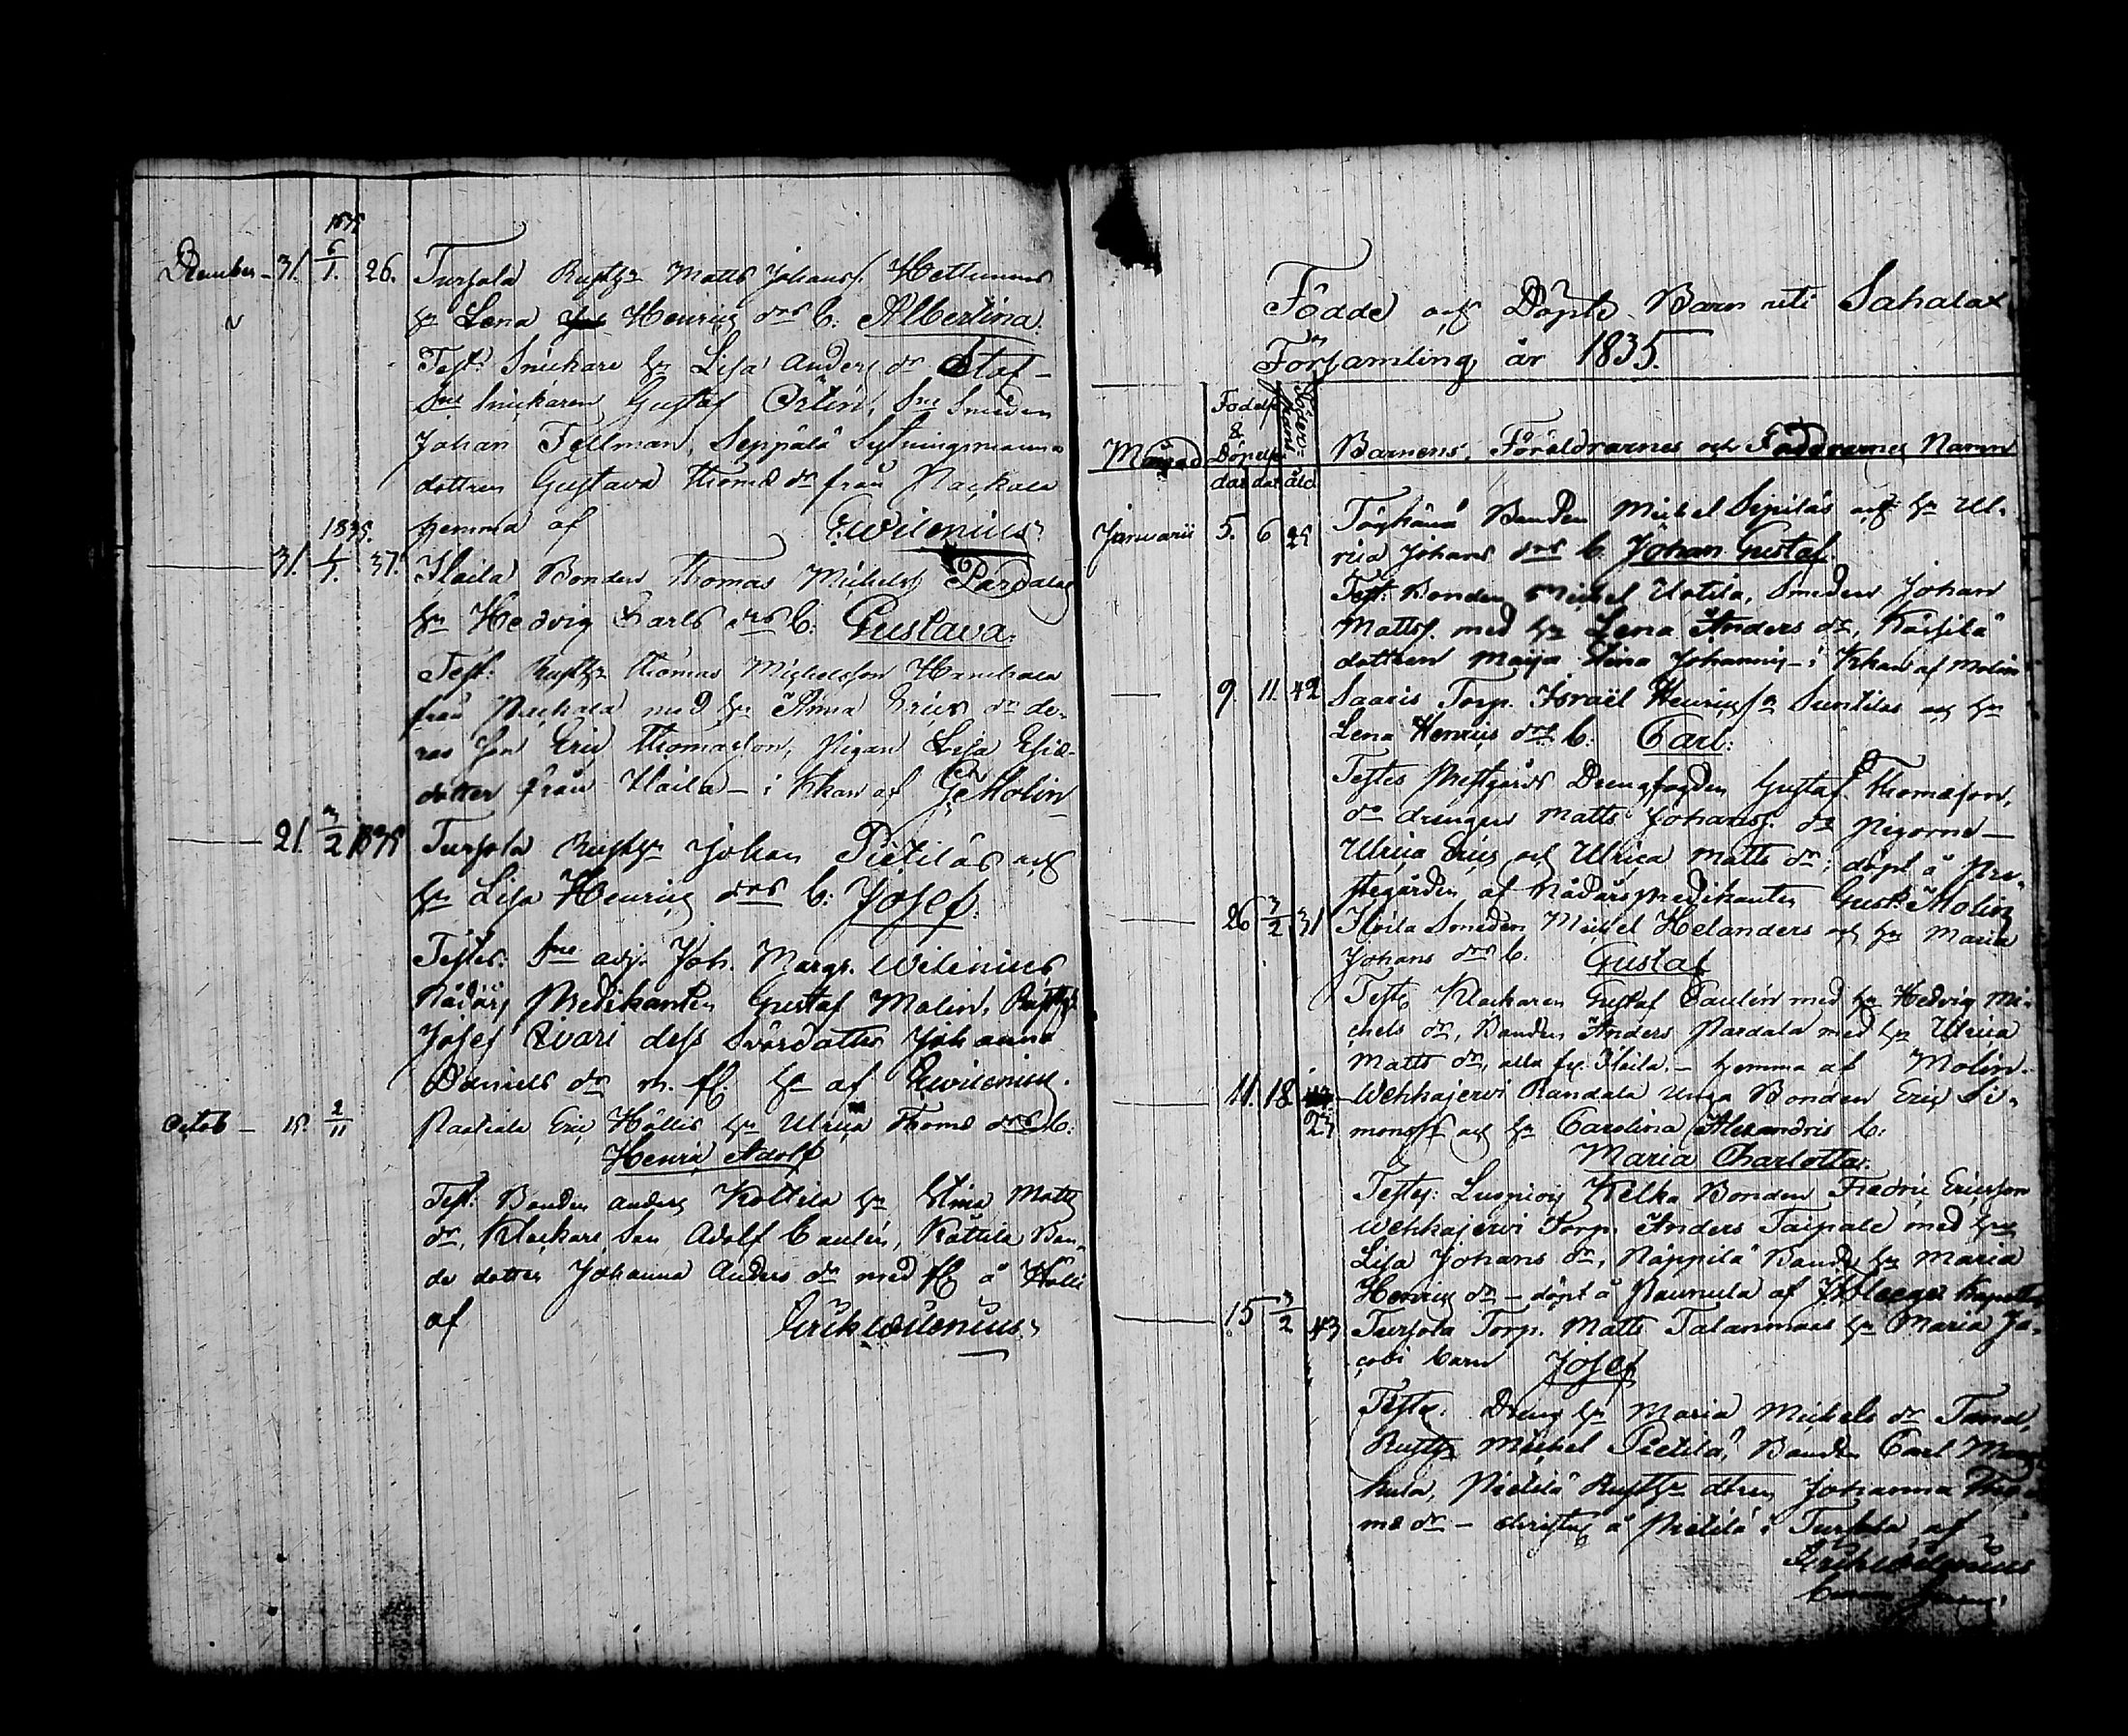 1835
December - 31. 6/1. 26. Tursola Rusth. Matts Johanss. Hettunens
h:u Lena Henrics d:rs b: Albertina.
Test: Snickare h:u Lisa Anders d:r
S:ne Snickaren Gustaf Örlin, S:ne Smeden
Johan Fellman, Seppälä Sytningsmanns
dottren Gustava Thomæ d:r från Naskala
hemma af E. Wilenius
1835.
31. 37. Ilaila Bonden Thomas Michelss. Pardalas
h:u Hedvig Carls d:rs b: Gustava.
Test: Rusth. Thomas Michelsson
från med h:u Anna Erics d:r de-
ras son Eric Thomasson, Pigan Lisa
dotter från Ilaila - i Khan af G. Molin
21 3/2 Tursola Rusth. Johan Pietiläs och
h:u Lisa Henrics d:rs b: Josef.
Testes: Joh. Margr. Wilenius
Nådårs Predikanten Gustaf Molin, Rusth.
Josef dess Svärdotter Johanna
Daniels d:r m. fl. af E. Wilenius.
Octob - 2/11 Eric Höllis h:u Ulrica Thomæ d:rs b:
Henric Adolf
Test: Bonden Anders Kottila h:u Stina Matts
d:r, Klockare Son Adolf Caulén, Kottila Bon-
de dotter Johanna Anders d:r med fl. å Hölli
af Erik Wilenius
Födde och Döpte Barn uti Sahalax
Församling år 1835.
Månad Födelse & Döpelse Moders Barnens, Föräldrarnes och Faddrarnes Namn
dat dat åld
Januarii 5. 6 25 Bonden Michel Sipiläs och h:u Ul-
rica Johans d:rs b. Johan Gustaf.
Test: Bonden Michel Uotila, Smeden Johan
Mattss. med h:u Lena Anders d:r,
dottren Maija Stina Johannis - i Khan af Molin
9. 11. 42 Saaris Torp. Israël Henricss:n Suntilas och h:u
Lena Henrics d:rs b: Carl.
Testes Prestgårds Drengfogden Gustaf Thomasson,
d:o drengen Matts Johanss. d:o Pigorne -
Ulrica Erics och Ulrica Matts d:r; döpt å Pre-
stegården af Nådårspredikanten Gust. Molin
26 3/2 31 Ilaila Smeden Michel Helanders och h:u Maria
Johans d:rs b. Gustaf
Testes Klockaren Gustaf Caulén med h:u Hedvig Mi-
chels d:r, Bonden Anders Pardala med h:u Ulrica
Matts d:r, alla fr. Ilaila. - hemma af Molin.
11. 18 Wehkajervi Randala Unga Bonden Eric Si-
23 monss och h:u Carolina Alexandris b:
Maria Charlotta.
Testes: Kelka Bonden Fredric Ericsson
Wehkajervi Torp. Anders Taipale med h:u
Lisa Johans d:r, Näppilä Bonde h:u Maria
Henrics d:r - döpt å af
15 3/2 43 Tursola Torp. Matts Talanmaas h:u Maria Ja-
cobi barn Josef
Testes. Dreng h:u Maria Michels d:r
Rusth. Michel Pietilä, Bonden Carl
kula, Pietilä Rusth. dtren Johanna Tho-
mæ d:r - christnad å Pietilä i Tursola af
Erik Wilenius